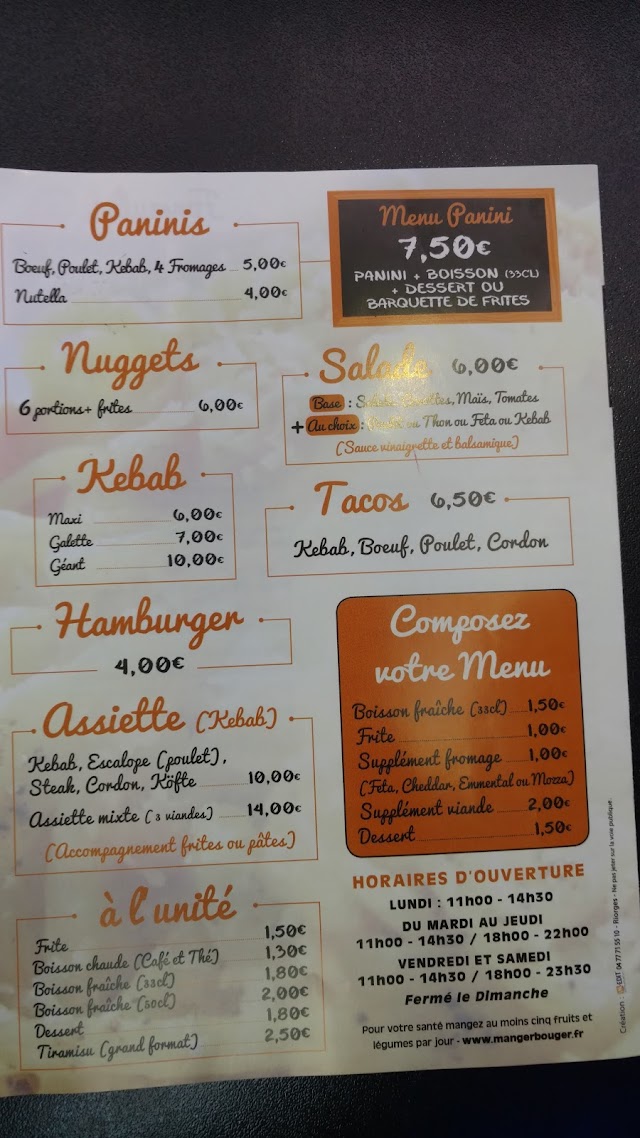 Paninis
Boeuf, Poulet, Kebab, 4 Fromages 5,00€
Nutella 4,00€
Menu Panini
7,50€
PANINI + BOISSON (33CL)
+ DESSERT OU
BARQUETTE DE FRITES
Nuggets
6 portions+ frites 6,00€
Salade 6,00€
Base : Maïs, Tomates
+ Au choix : ou Thon ou Feta ou Kebab
(Sauce vinaigrette et balsamique)
Kebab
Maxi 6,00€
Galette 7,00€
Géant 10,00€
Tacos 6,50€
Kebab, Boeuf, Poulet, Cordon
Hamburger
4,00€
Composez
votre Menu
Boisson fraîche (33cl) 1,50€
Frite 1,00€
Supplément fromage 1,00€
(Feta, Cheddar, Emmental ou Mozza)
Supplément viande 2,00€
Dessert 1,50€
Assiette (Kebab)
Kebab, Escalope (poulet),
Steak, Cordon, Köfte 10,00€
Assiette mixte (3 viandes) 14,00€
(Accompagnement frites ou pâtes)
à l'unité
Frite 1,50€
Boisson chaude (Café et Thé) 1,30€
Boisson fraîche (33cl) 1,80€
Boisson fraîche (50cl) 2,00€
Dessert 1,80€
Tiramisu (grand format) 2,50€
HORAIRES D'OUVERTURE
LUNDI : 11h00 - 14h30
DU MARDI AU JEUDI
11h00 - 14h30 / 18h00 - 22h00
VENDREDI ET SAMEDI
11h00 - 14h30 / 18h00 - 23h30
Fermé le Dimanche
Pour votre santé mangez au moins cinq fruits et
légumes par jour - www.mangerbouger.fr
Création : EDIT 04 77 71 55 10 - Riorges - Ne pas jeter sur la voie publique.